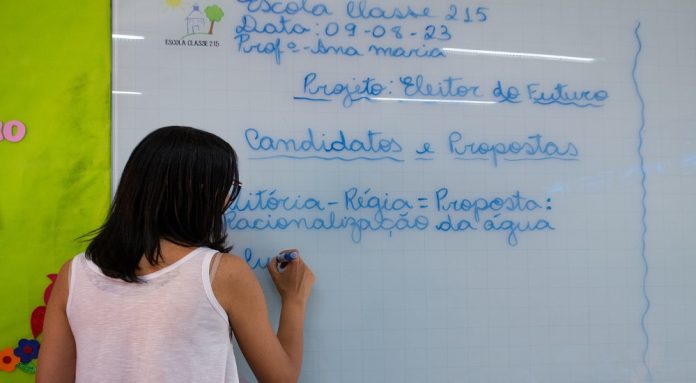 Escola Classe 215
Data: 09-08-23
Profª-Ana maria
ESCOLA CLASSE 215
Projeto: Eleitor do Futuro
Candidatos e Propostas
itória-Régia = Proposta:
Racionalização da água